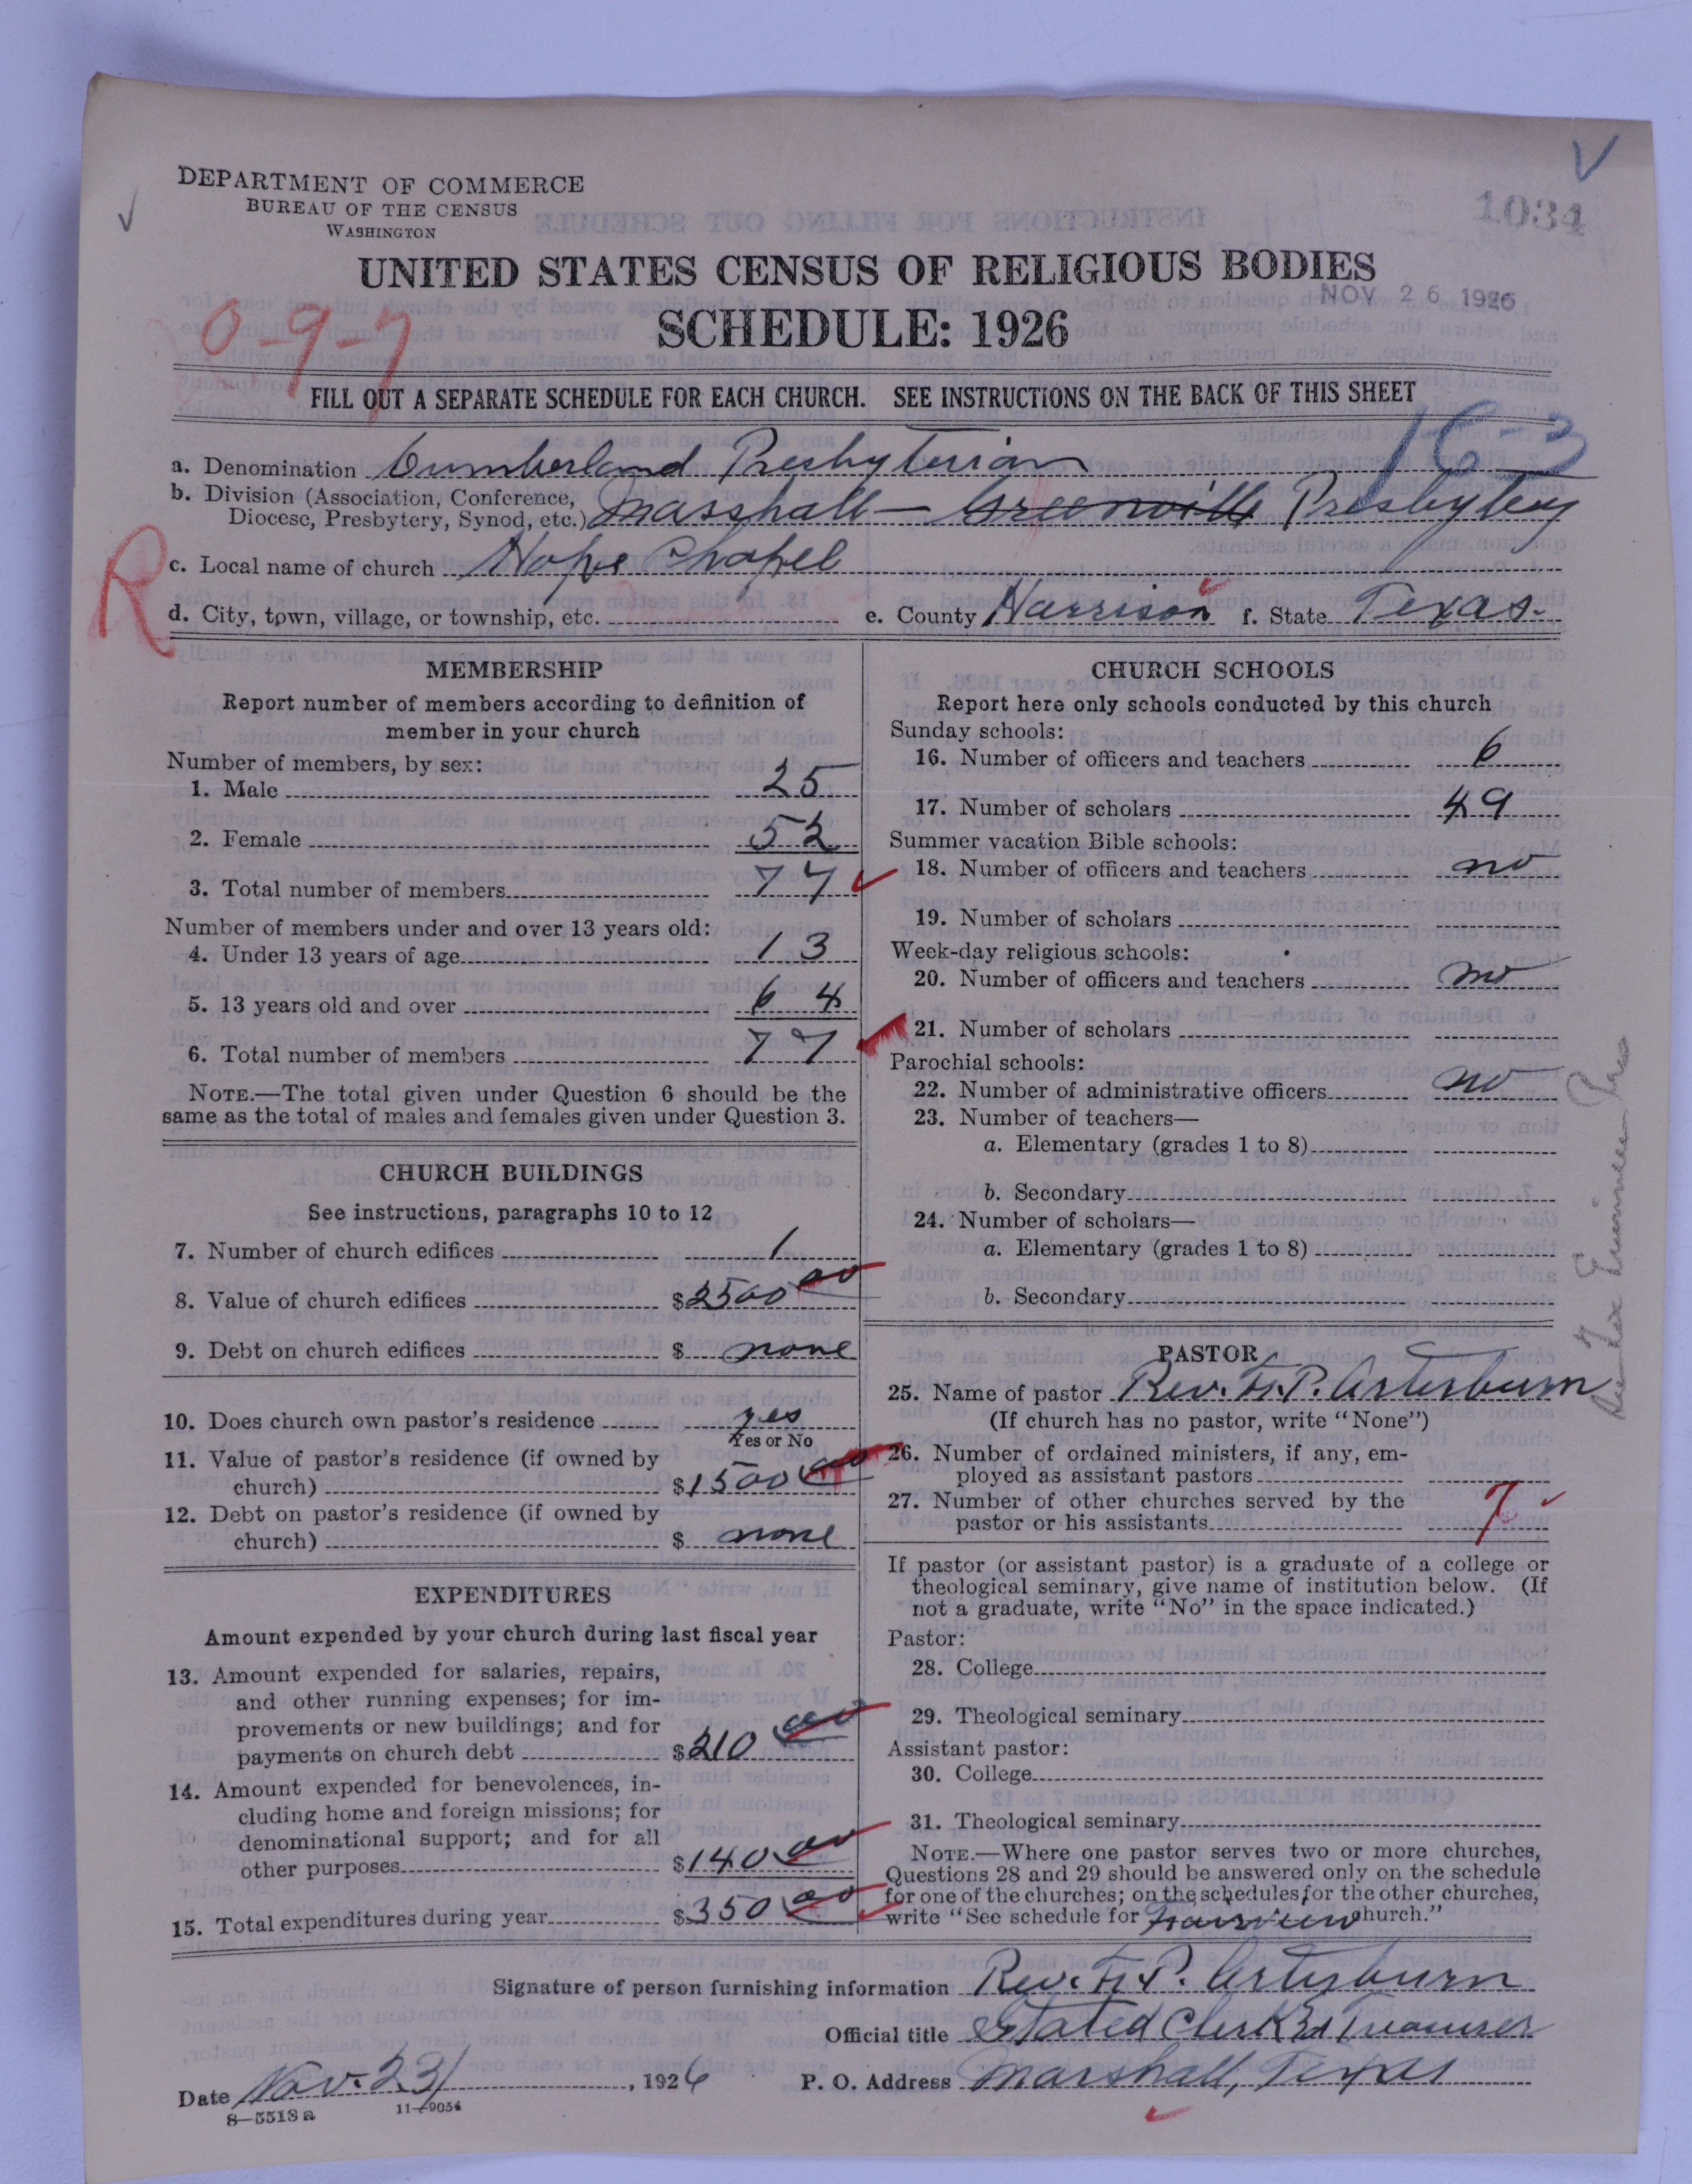 DEPARTMENT OF COMMERCE
BUREAU OF THE CENSUS
WASHINGTON
1034
UNITED STATES CENSUS OF RELIGIOUS BODIES
NOV 26 1926
SCHEDULE: 1926
0-9-7
FILL OUT A SEPARATE SCHEDULE FOR EACH CHURCH. SEE INSTRUCTIONS ON THE BACK OF THIS SHEET
16-3
a. Denomination Cumberland Presbyterian
b. Division (Association, Conference, Diocese, Presbytery, Synod, etc.) Marshall — Greenville Presbytery
R
c. Local name of church Hope Chapel
d. City, town, village, or township, etc. e. County Harrison f. State Texas.
MEMBERSHIP
Report number of members according to definition of
member in your church
Number of members, by sex:
1. Male 25
2. Female 52
3. Total number of members 77
Number of members under and over 13 years old:
4. Under 13 years of age 13
5. 13 years old and over 64
6. Total number of members 77
NOTE.—The total given under Question 6 should be the
same as the total of males and females given under Question 3.
CHURCH BUILDINGS
See instructions, paragraphs 10 to 12
7. Number of church edifices 1
8. Value of church edifices $2500 00
9. Debt on church edifices $ none
10. Does church own pastor's residence yes
Yes or No
11. Value of pastor's residence (if owned by
church) $1500 00
12. Debt on pastor's residence (if owned by
church) $ none
EXPENDITURES
Amount expended by your church during last fiscal year
13. Amount expended for salaries, repairs,
and other running expenses; for im-
provements or new buildings; and for
payments on church debt $210 00
14. Amount expended for benevolences, in-
cluding home and foreign missions; for
denominational support; and for all
other purposes $140 00
15. Total expenditures during year $350 00
CHURCH SCHOOLS
Report here only schools conducted by this church
Sunday schools:
16. Number of officers and teachers 6
17. Number of scholars 49
Summer vacation Bible schools:
18. Number of officers and teachers no
19. Number of scholars
Week-day religious schools:
20. Number of officers and teachers no
21. Number of scholars
Parochial schools:
22. Number of administrative officers no
23. Number of teachers—
a. Elementary (grades 1 to 8)
b. Secondary
24. Number of scholars—
a. Elementary (grades 1 to 8)
b. Secondary
PASTOR
25. Name of pastor Rev. F.P. Arterburn
(If church has no pastor, write "None")
26. Number of ordained ministers, if any, em-
ployed as assistant pastors
27. Number of other churches served by the
pastor or his assistants 7
If pastor (or assistant pastor) is a graduate of a college or
theological seminary, give name of institution below. (If
not a graduate, write "No" in the space indicated.)
Pastor:
28. College
29. Theological seminary
Assistant pastor:
30. College
31. Theological seminary
NOTE.—Where one pastor serves two or more churches,
Questions 28 and 29 should be answered only on the schedule
for one of the churches; on the schedules for the other churches,
write "See schedule for Fairview church."
Signature of person furnishing information Rev. F.P. Arterburn
Official title Stated Clerk & Treasurer
Date Nov. 23/, 1926 P. O. Address Marshall, Texas
8—5518 a 11—9054